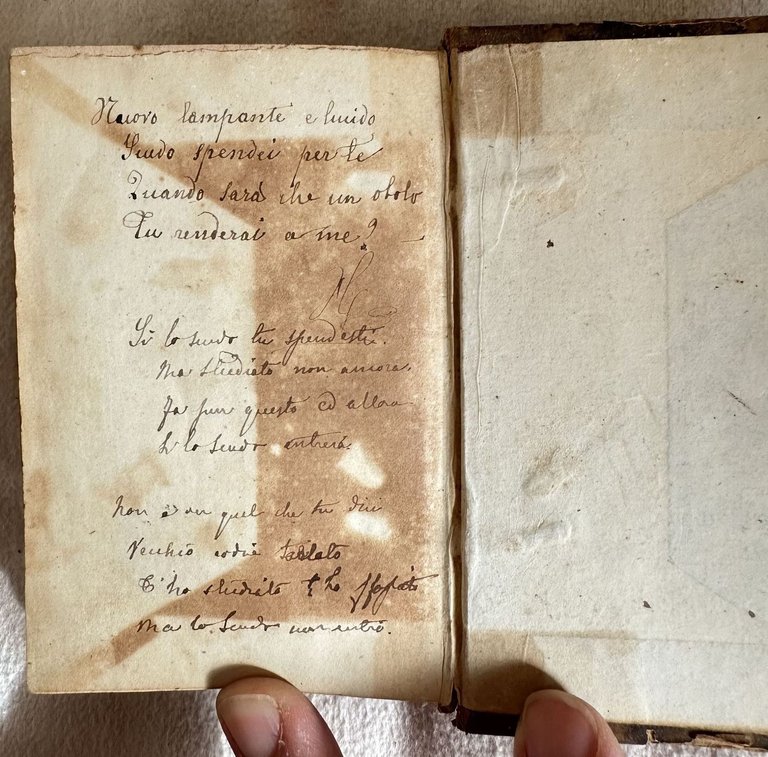 Nuovo lampante e lucido
Scudo spendei per te
Quando sarà che un obolo
Tu renderai a me?
Sì lo scudo tu spendesti.
Ma studiato non ancora.
Fa pur questo ed allora
Sì lo Scudo entrerà.
Non è ver quel che tu dici
Vecchio codice
T'ho studiato t'ho
Ma lo Scudo non entrò.